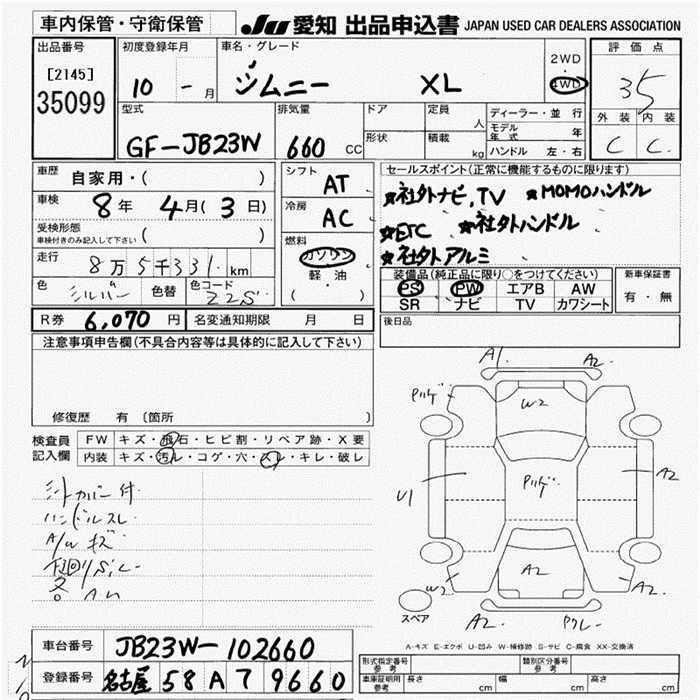 車内保管・守衛保管
JU 愛知 出品申込書 JAPAN USED CAR DEALERS ASSOCIATION
出品番号
[2145]
35099
初度登録年月
10 - 月
車名・グレード
ジムニー XL
2WD
・
4WD
評価点
35
外装 内装
C C
型式
GF-JB23W
排気量
660 CC
ドア
形状
定員 人
積載 kg
ディーラー・並行
モデル年式 年
ハンドル 左・右
車歴 自家用・( )
車検 8年 4月(3日)
受検形態
車検付きのみ記入して下さい ( )
走行 8万5千331 km
色 シルバー 色替 色コード Z2S
シフト AT
冷房 AC
燃料
ガソリン
軽・油
( )
セールスポイント(正常に機能するものに限ります)
★社外ナビ,TV ★MOMOハンドル
★ETC ★社外ハンドル
★社外アルミ
装備品(純正品に限り○をつけてください)
PS PW エアB AW
SR ナビ TV カワシート
新車保証書
有・無
R券 6,070 円 名変通知期限 月 日
後日品
注意事項申告欄(不具合内容等は具体的に記入して下さい)
修復歴 有 (箇所
検査員
記入欄
FW キズ・飛石・ヒビ割・リペア跡・X要
内装 キズ・汚レ・コゲ・穴・スレ・キレ・破レ
シートカバー付
ハンドルスレ
A/W キズ
下廻りサビ
各 AU
A1. A2.
W2
A2
U1
A2
W2 A2.
スペア A2.
A-キズ E-エクボ U-凹み W-補修跡 S-サビ C-腐食 XX-交換済
車台番号 JB23W-102660
登録番号 名古屋 58 A 7 9660
形式指定番号
参考
類別区分番号
参考
車庫証明用
参考
長さ cm 幅 cm 高さ cm